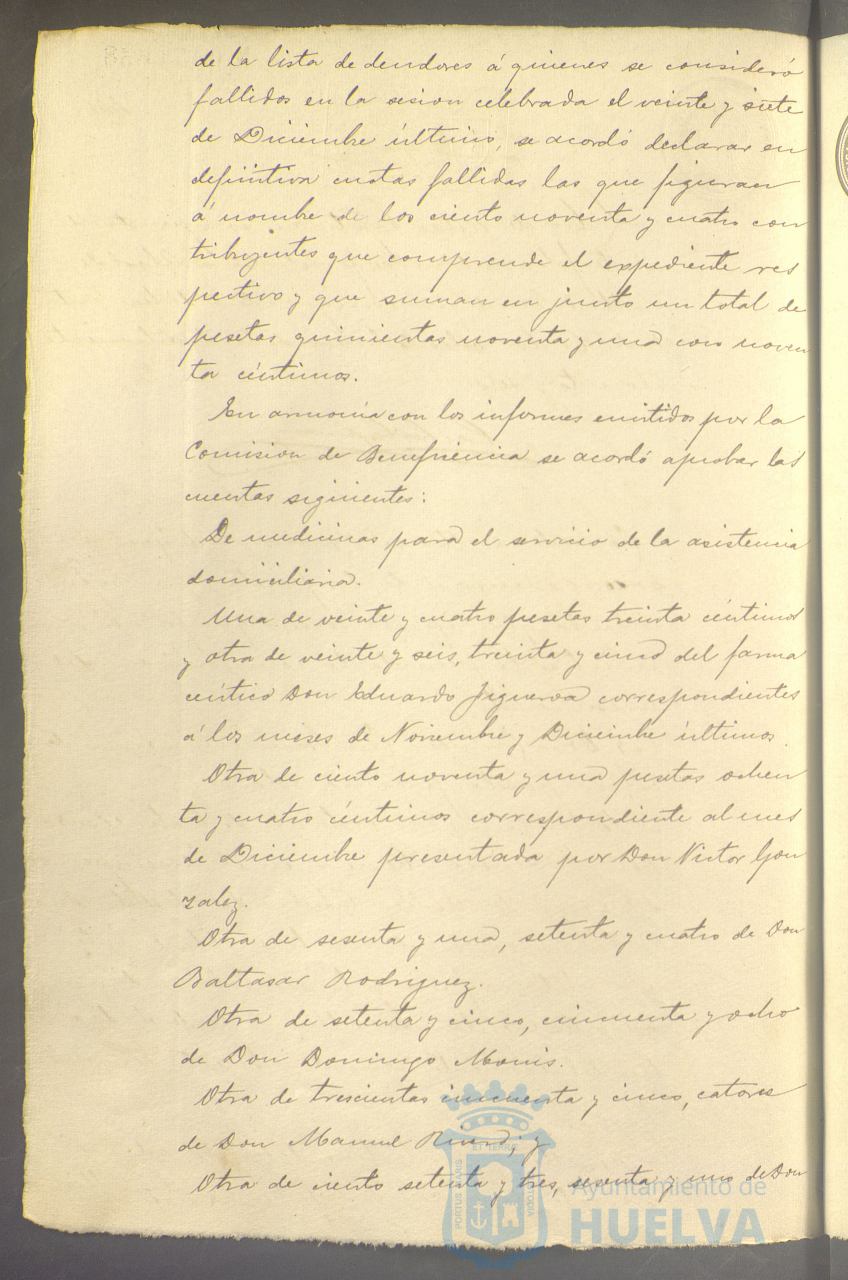 de la lista de deudores á quienes se consideró
fallidos en la sesion celebrada el veinte y siete
de Diciembre último, se acordó declarar en
definitiva cuotas fallidas las que figuran
á nombre de los ciento noventa y cuatro con
tribuyentes que comprende el expediente res
pectivo y que suman en junto un total de
pesetas quinientas noventa y una con noven
ta céntimos.
En armonía con los informes emitidos por la
Comision de Beneficencia se acordó aprobar las
cuentas siguientes:
De medicinas para el servicio de la asistencia
domiciliaria.
Una de veinte y cuatro pesetas treinta céntimos
y otra de veinte y seis, treinta y cinco del farma
ceútico Don Eduardo Figueroa correspondientes
á los meses de Noviembre y Diciembre últimos.
Otra de ciento noventa y una pesetas ochen
ta y cuatro céntimos correspondiente al mes
de Diciembre presentada por Don Victor Gon
zalez.
Otra de sesenta y una, setenta y cuatro de Don
Baltasar Rodriguez.
Otra de setenta y cinco, cincuenta y ocho
de Don Domingo Monis.
Otra de trescientas cincuenta y cinco, catorce
de Don Manuel y
Otra de ciento setenta y tres, sesenta y uno de Don
PORTUS MARIS ET TERRE CUSTODIA
Ayuntamiento de
HUELVA